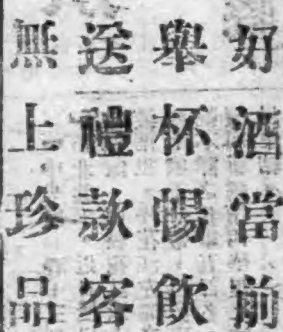 好酒當前
舉杯暢飲
送禮款客
無上珍品